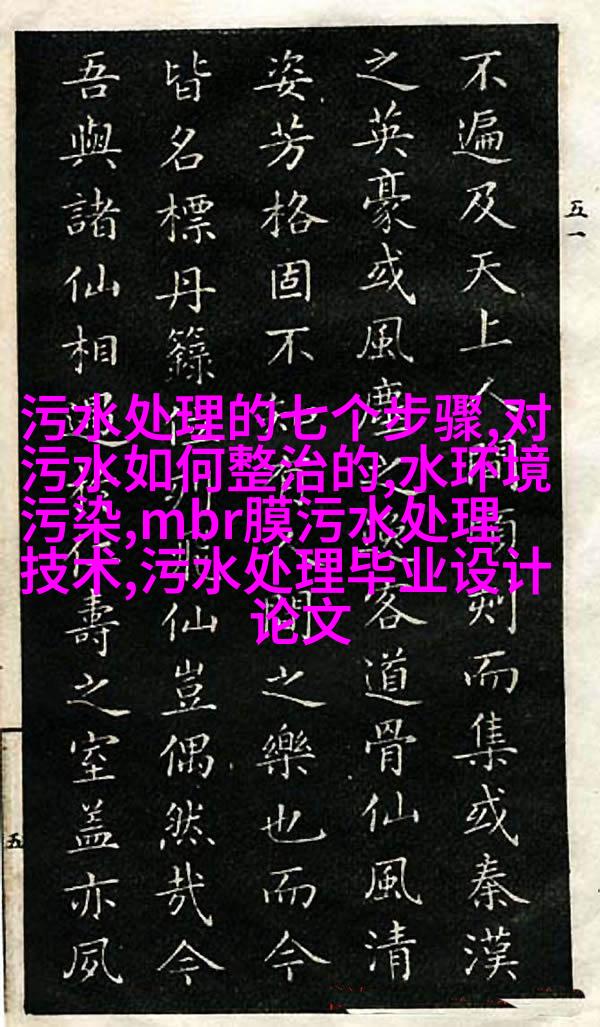 不遍及天上人間頃刻而集或秦漢
之英豪或風塵之客道骨仙風清
姿芳格固不知間之樂也而今
皆名標丹籙仙豈偶然哉今
吾與諸仙相遇壽之室蓋亦夙
五一
五
污水处理的七个步骤,对
污水如何整治的,水环境
污染,mbr膜污水处理
技术,污水处理毕业设计
论文